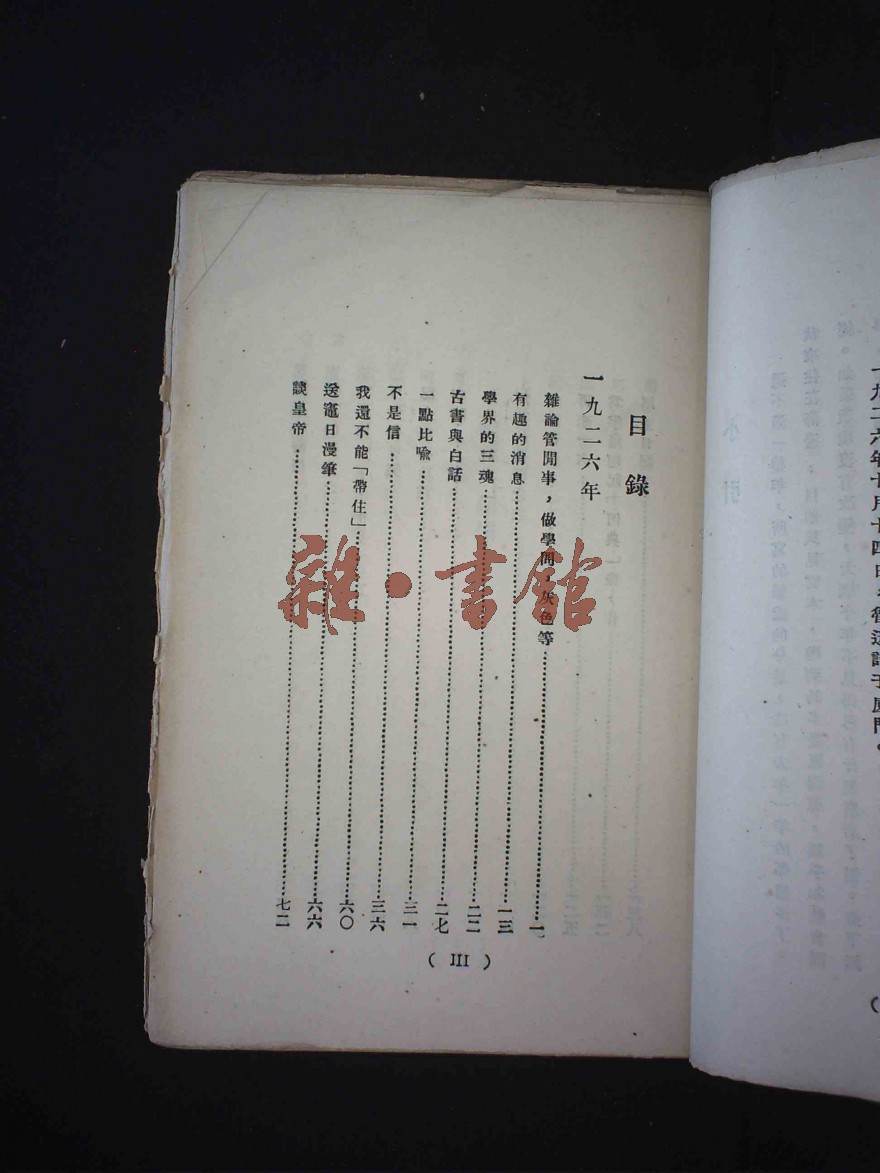 一九二六年十月十四日，魯迅記于廈門。
目錄
一九二六年
雜論管閒事，做學問，灰色等……一
有趣的消息……一三
學界的三魂……二二
古書與白話……二七
一點比喻……三一
不是信……三六
我還不能「帶住」……六〇
送竈日漫筆……六六
談皇帝……七二
( III )
雜·書館